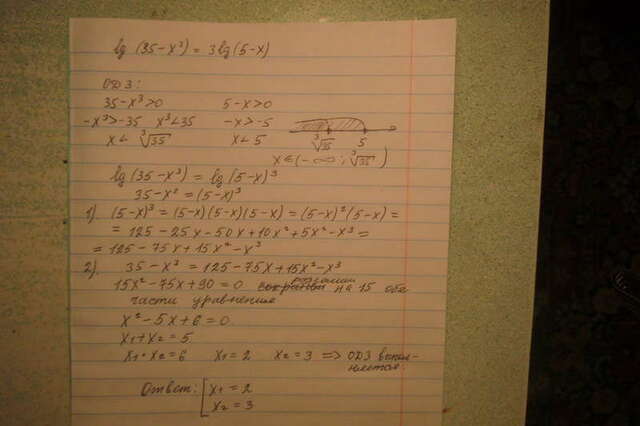 lg (35-x³) = 3lg(5-x)
ОДЗ:
35-x³>0 5-x>0
-x³>-35 x³<35 -x>-5
x< ∛35 x<5 ∛35 5
x∈(-∞; ∛35)
lg(35-x³) = lg(5-x)³
35-x³ = (5-x)³
1) (5-x)³ = (5-x)(5-x)(5-x) = (5-x)²(5-x) =
= 125-25x-50x+10x²+5x²-x³ =
= 125-75x+15x²-x³
2). 35-x³ = 125-75x+15x²-x³
15x²-75x+90=0 разделим на 15 обе
части уравнения
x²-5x+6=0.
x₁+x₂=5
x₁·x₂=6 x₁=2 x₂=3 => ОДЗ выпол-
няется.
Ответ: [x₁=2
x₂=3